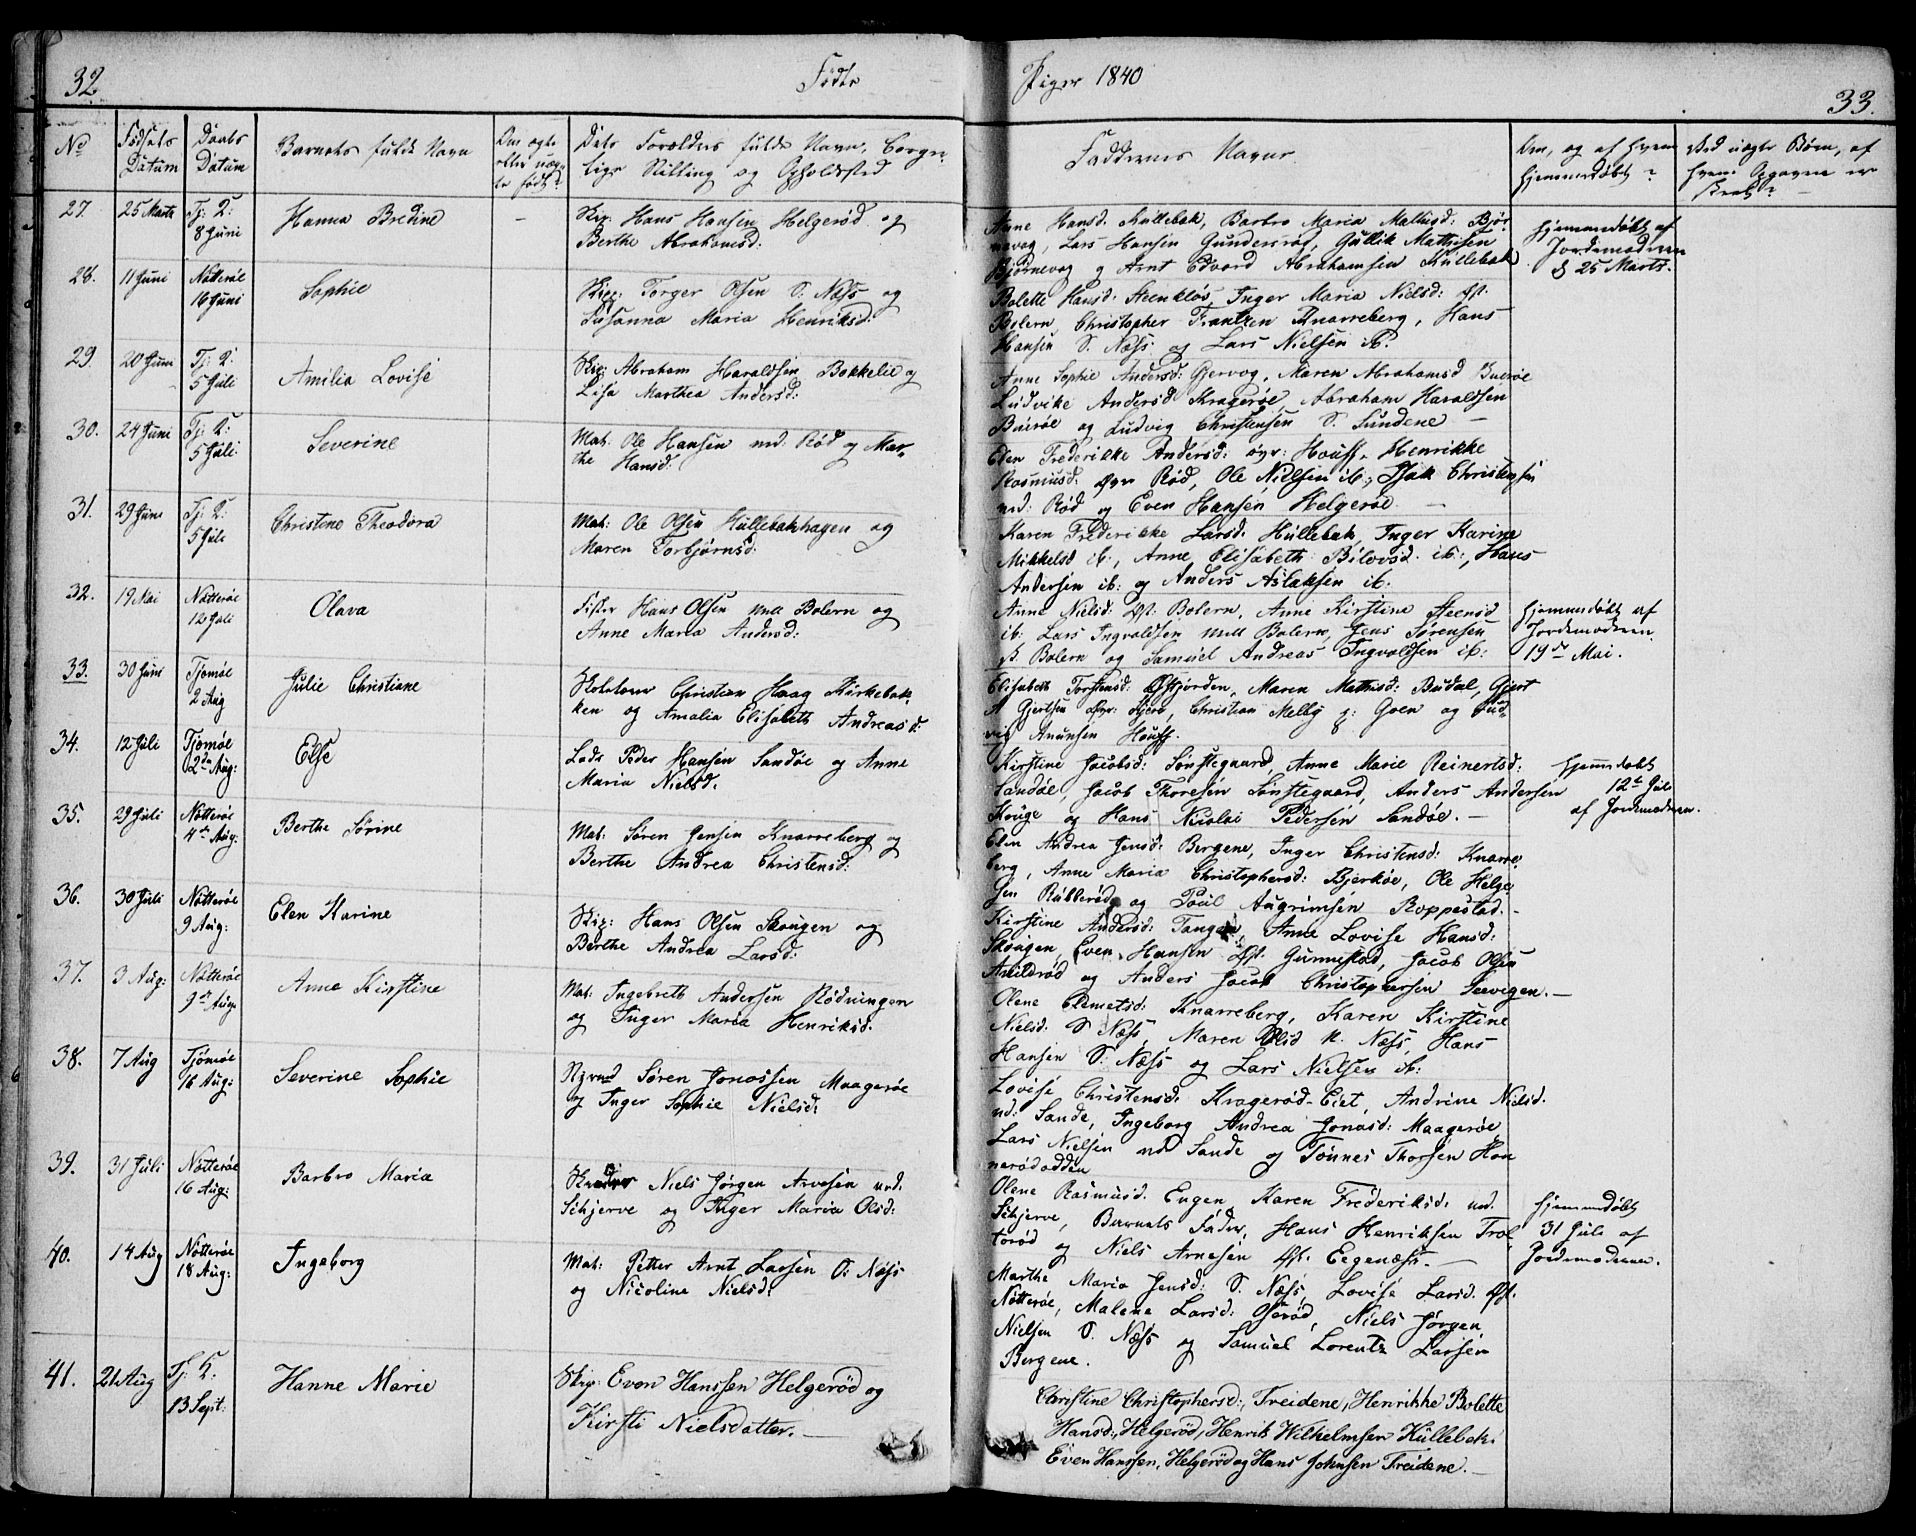 32
Fødte
Piger 1840
33.
No
Fødsels Datum
Daabs Datum
Barnets fulde Navn
Om ægte eller uægte født?
Dets Forældres fulde Navn, Borgerlige Stilling og Opholdsted
Faddernes Navne
Om, og af hvem hjemmedøbt?
Ved uægte Børn, af hvem Opgaven er skeet?
27.
25 Marts
Tj: K:
8 Juni
Hanna Bredine
Skip: Hans Hansen Helgerød og
Berthe Abrahamsd:
Anne Hansd. Hüllebak, Barbro Maria Mathisd: Bjør-
nevog, Lars Hansen Gundersrød, Gullik Mathisen
Bjørnevog og Arnt Edvard Abrahamsen Hüllebak
Hjemmedøbt af
Jordemoderen
d 25 Marts.
28.
11 Juni
Nøtterøe
16 Juni
Sophie
Skip: Torger Olsen S. Næss og
Susanna Maria Henriksd:
Bolette Hansd: Steenkløs, Inger Maria Nielsd: Øst.
Bolern, Christopher Frantzen Knarreberg, Hans
Hansen S. Næss og Lars Nielsen ib.
29.
20 Juni
Tj: K:
5 Juli
Amilia Lovise
Skip: Abraham Haraldsen Bakkelie og
Lisa Marthea Andersd:
Anne Sophie Andersd: Gjervog, Maren Abrahamsd Buerøe
Ludvike Andersd Kragerøe, Abraham Haraldsen
Buerøe og Ludvig Christensen S. Sundene
30.
24 Juni
Tj: K:
5 Juli:
Severine
Mat: Ole Hansen ned. Rød og Mar-
the Hansd:
Elen Frederikke Andersd: øvr: Houff, Henrikke
Rasmusd: Øvr Rød, Ole Nielsen ib:, Isak Christensen
ned: Rød og Even Hansen Helgerøe.
31.
29 Juni
Tj: K:
5 Juli
Christine Theodora
Mat: Ole Olsen Hüllebakhagen og
Maren Torbjørnsd:
Karen Frederikke Larsd: Hüllebak, Inger Karine
Mikkelsd ib:, Anne Elisabeth ib:, Hans
Andersen ib: og Anders Aslaksen ib.
32.
19 Mai
Nøtterøe
12 Juli
Olava
Fisker Hans Olsen Mell Bolern og
Anne Maria Andersd:
Anne Nielsd. Øst: Bolern, Anne Kirstine Steensd
ib: Lars Ingvaldsen Mell Bolern, Jens Sørensen
Bolern og Samuel Andreas Ingvoldsen ib:
Hjemmedøbt af
Jordemoderen
19de Mai.
33.
30 Juni
Tjømøe
2 Aug
Julie Christiane
Skoleholder Christian Haag Kirkebak-
ken og Amalia Elisabeth Andreasd:
Elisabeth Torstensd: Østjorden, Maren Mathisd: Budal, Gjert
A Gjertsen Øvr: Hjere, Christian Melby Goen og Lud-
vig Anunsen Houff.
34.
12 Juli
Tjømøe
2den Aug:
Else
Lods Peder Hansen Sandøe og Anne
Maria Nielsd.
Kirstine Jacobsd: Sønstegaard, Anne Marie Reinertsd:
Sandøe, Jacob Thoresen Sønstegaard, Anders Andersen
Kouge og Hans Nicolai Pedersen Sandøe.
Hjemmedøbt
12te Juli
af Jordemoderen.
35.
29 Juli
Nøtterøe
4de Aug:
Berthe Sørine
Mat: Søren Jensen Knarreberg og
Berthe Andrea Christensd:
Elen Andrea Jensd: Bergene, Inger Christensd: Knarre-
berg, Anne Maria Christophersd: Bjerkøe, Ole Helge-
sen Rubberød og Poul Augrimsen Roppestad.
36.
30 Juli
Nøtterøe
9 Aug:
Elen Karine
Skip: Hans Olsen Skougen og
Berthe Andrea Larsd:
Kirstine Andersd: Tangen, Anne Lovise Hansd:
Skougen, Even Hansen Øst. Gunnestad, Jacob Olsen
Anildrød og Anders Jacob Christophersen Seevigen.
37.
3 Aug:
Nøtterøe
9de Aug.
Anne Kirstine
Mat: Ingebreth Andersen Rødningen
og Inger Maria Henriksd:
Olene Clemetsd: Knarreberg, Karen Kirstine
Nielsd: S Næss, Maren Olsd N. Næss, Hans
Hansen S: Næss og Lars Nielsen ib:
38.
7 Aug
Tjømøe
16 Aug:
Severine Sophie
Søren Jonassen Maagerøe
og Inger Sophie Nielsd:
Lovise Christensd: Kragerød-Eiet, Andrine Nielsd.
nd: Sande, Ingeborg Andrea Jonasd: Maagerøe
Lars Nielsen nd Sande og Tønnes Thorsen Hon
nerødodden
39.
31 Juli
Nøtterøe
16 Aug:
Barbro Maria
Niels Jørgen Arvesen ned.
Schjerve og Inger Maria Olsd:
Olene Rasmusd. Eugen Karen Frederiksd: ned.
Schjerve, Barnets Fader, Hans Henriksen Trol-
torød og Niels Arnesen Øst. Eegenæss.
Hjemmedøbt
31 Juli af
Jordemoderen.
40.
14 Aug
Nøtterøe
18 Aug:
Ingeborg
Mat: Petter Arnt Larsen S: Næss
og Nicoline Nielsd:
Marthe Maria Jensd: S. Næss, Lovise Larsd. Øst.
Nøtterøe, Malene Larsd: Oserød, Niels Jørgen
Nielsen S. Næss og Samuel Lorentz Larsen
Bergene.
41.
21 Aug
Tj: K:
13 Sept:
Hanne Marie
Skip: Even Hanssen Helgerød og
Kirsti Nielsdatter.
Christine Christophersd:, Treidene, Henrikke Bolette
Hansd:, Helgerød, Henrik Wilhelmsen Hüllebak,
Even Hanssen, Helgerød og Hans Johnsen Treidene.